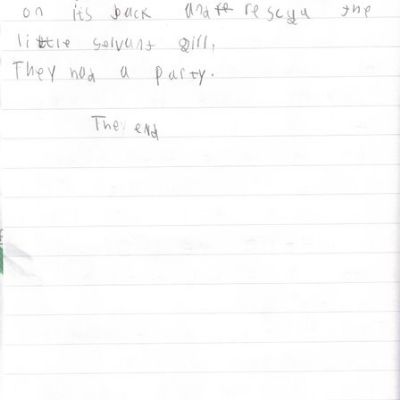 on its back and rescyu the
little selvant girl,
They had a party.
The end